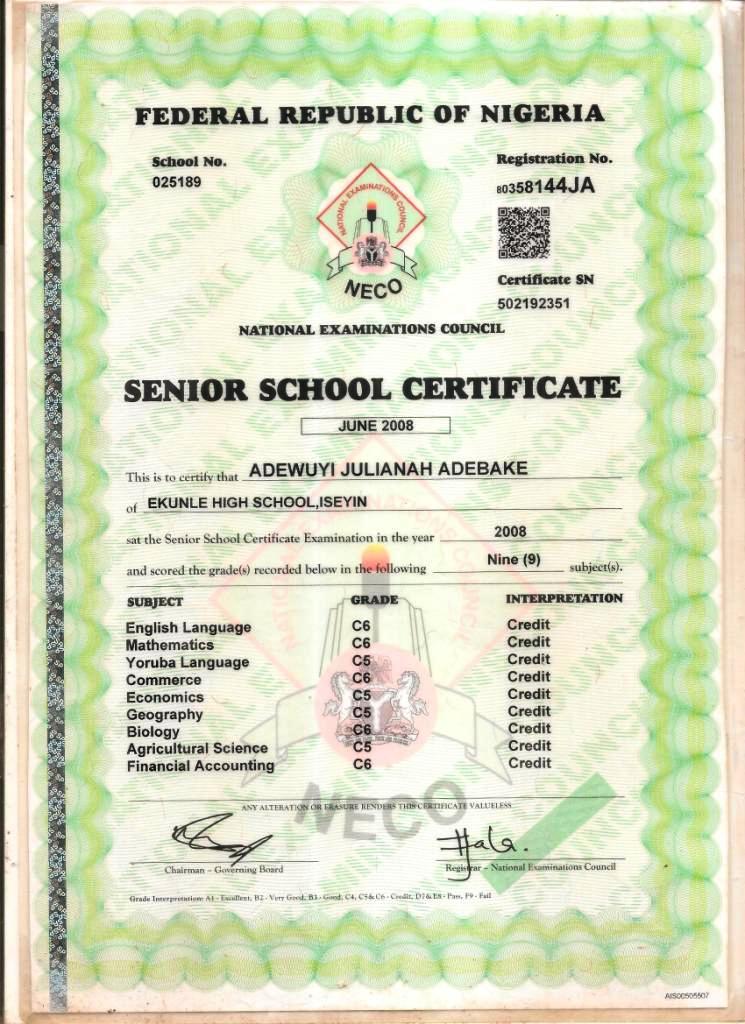 FEDERAL REPUBLIC OF NIGERIA
School No.
025189
Registration No.
80358144JA
NATIONAL EXAMINATIONS COUNCIL
NECO
Certificate SN
502192351
NATIONAL EXAMINATIONS COUNCIL
SENIOR SCHOOL CERTIFICATE
JUNE 2008
This is to certify that ADEWUYI JULIANAH ADEBAKE
of EKUNLE HIGH SCHOOL,ISEYIN
sat the Senior School Certificate Examination in the year 2008
and scored the grade(s) recorded below in the following Nine (9) subject(s).
SUBJECT GRADE INTERPRETATION
English Language C6 Credit
Mathematics C6 Credit
Yoruba Language C5 Credit
Commerce C6 Credit
Economics C5 Credit
Geography C5 Credit
Biology C6 Credit
Agricultural Science C5 Credit
Financial Accounting C6 Credit
NECO
ANY ALTERATION OR ERASURE RENDERS THIS CERTIFICATE VALUELESS
Chairman – Governing Board
Registrar – National Examinations Council
Grade Interpretation: A1 - Excellent, B2 - Very Good, B3 - Good, C4, C5 & C6 - Credit, D7 & E8 - Pass, F9 - Fail
AIS00505507